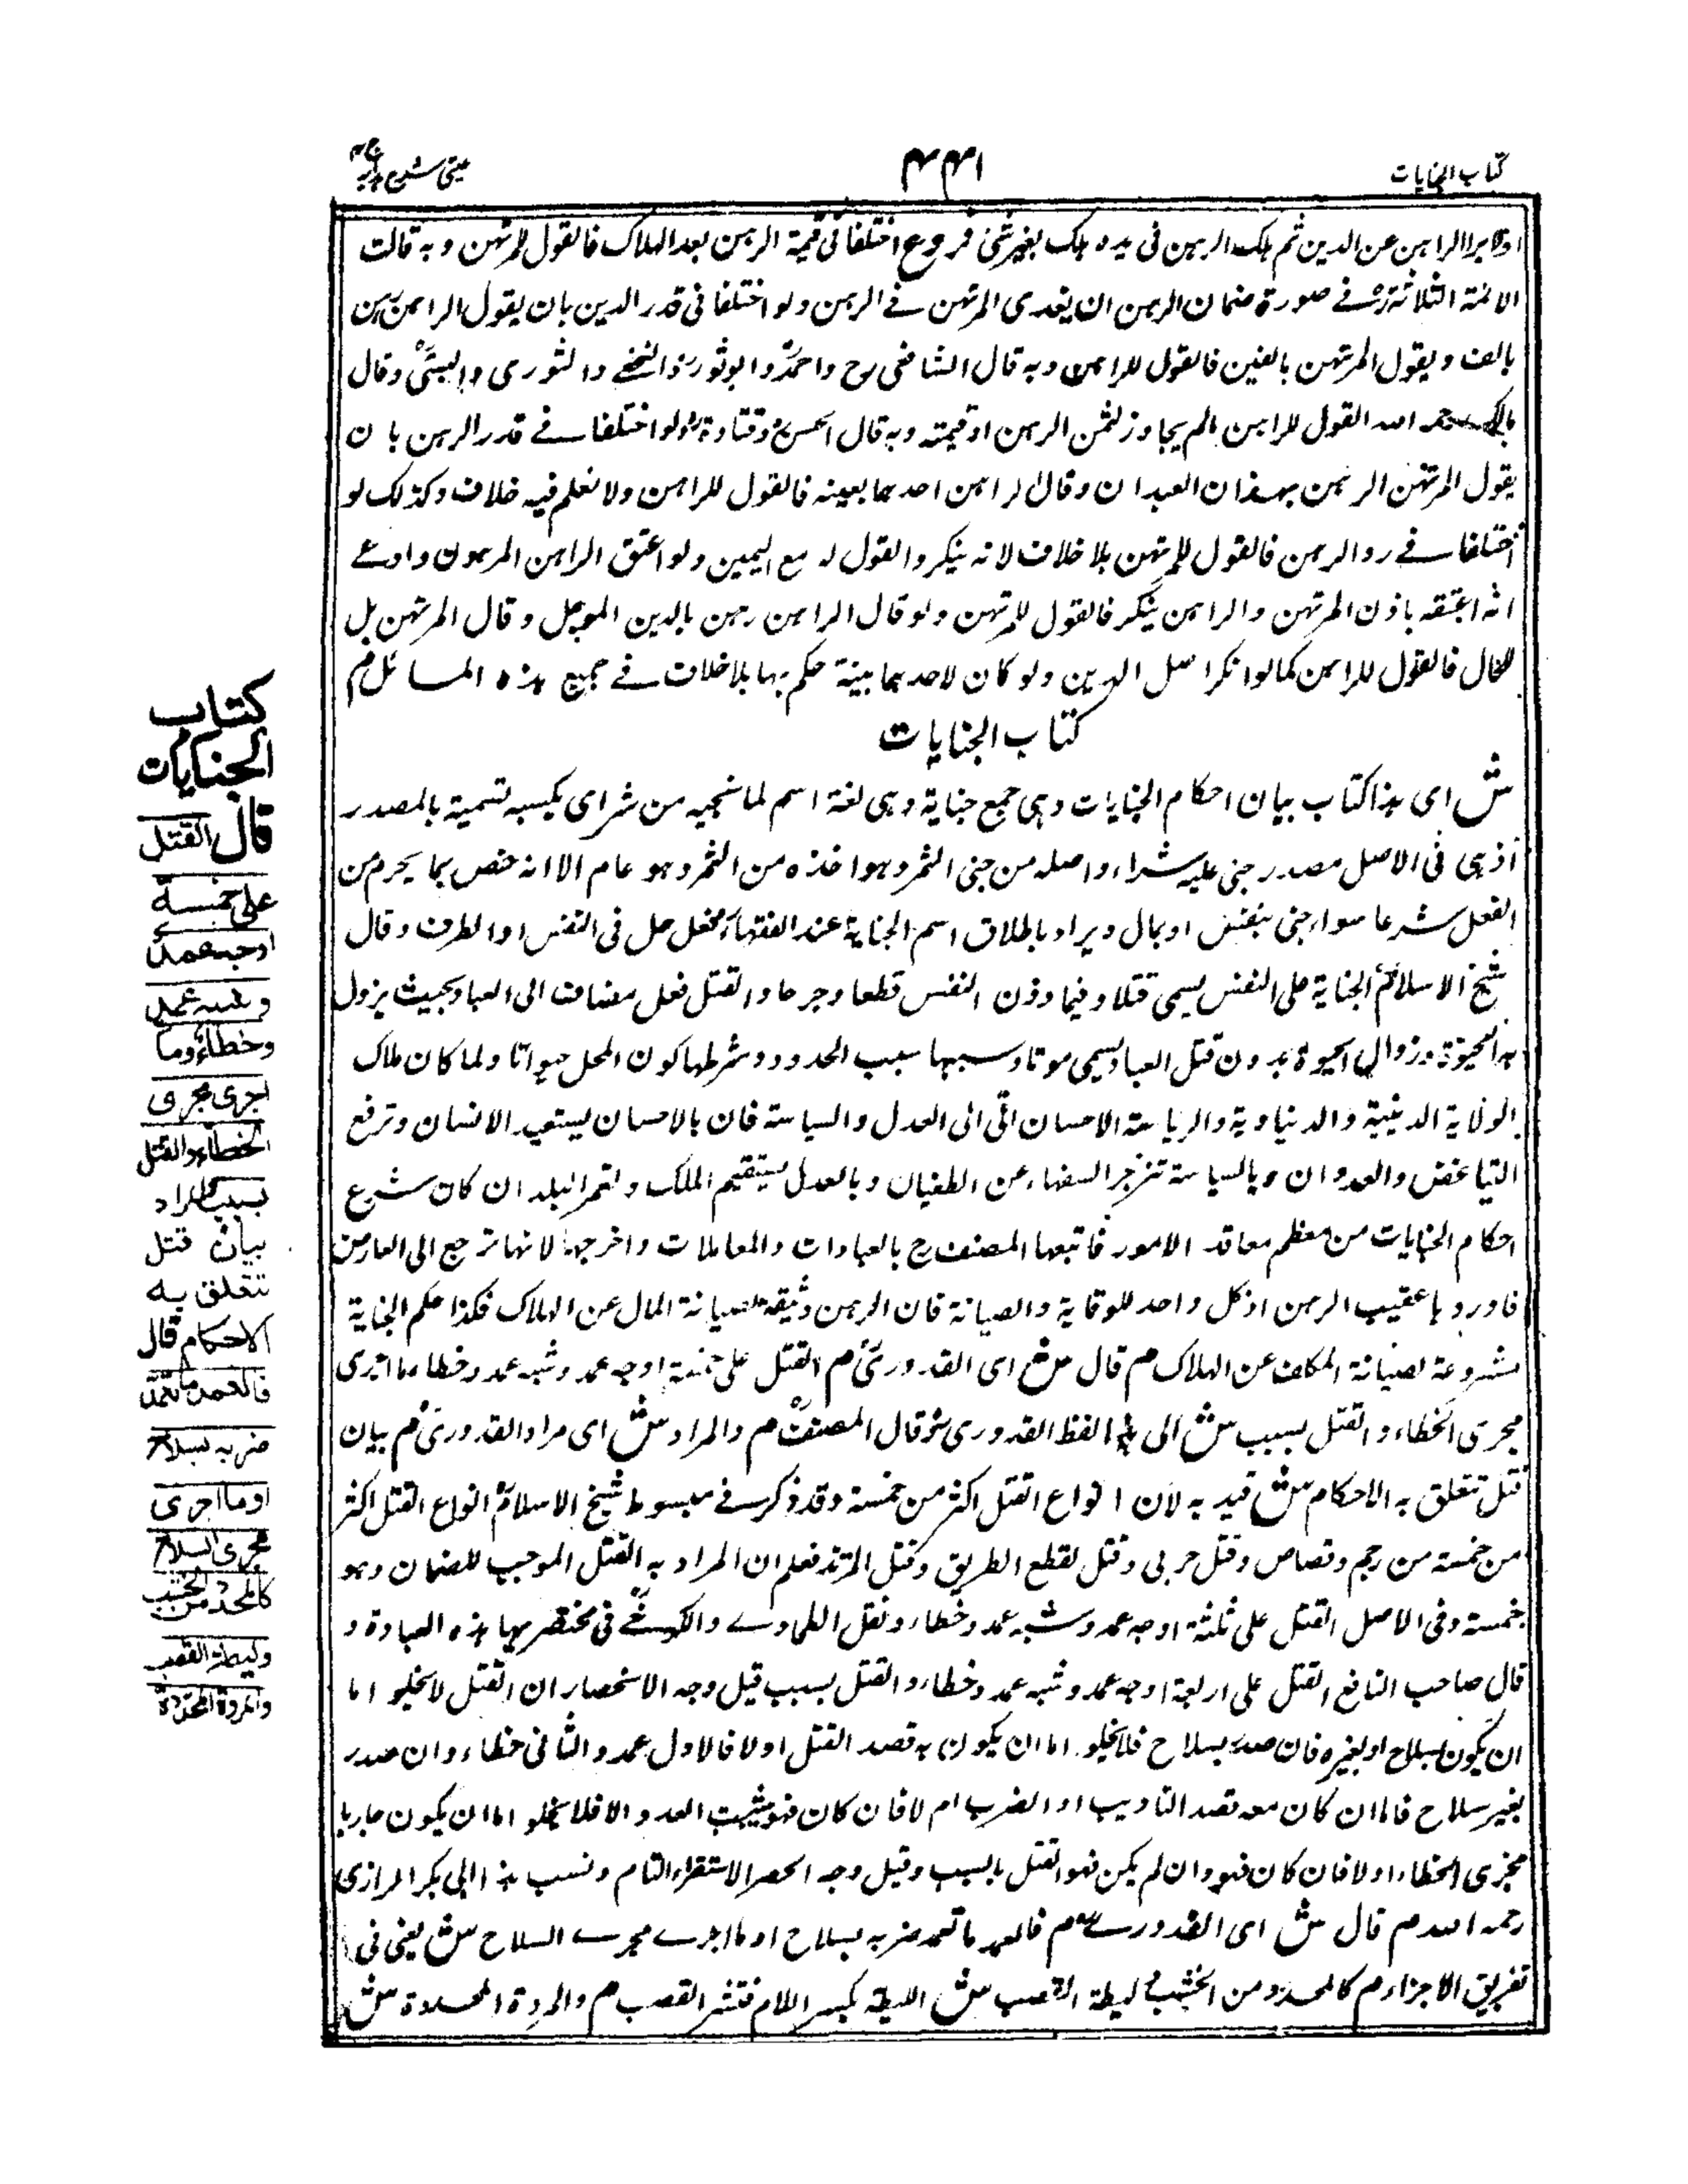 كتاب الجنايات
۴۴۱
عينى شرح هداية ج ۴
الراهن عن الدين ثم هلك الرهن فى يده هلك بغير شئ فروع اختلفا فى قيمة الرهن بعد الهلاك فالقول للمرتهن وبه قالت
الائمة الثلاثة فى صورة ضمان الرهن ان يعدى المرتهن فى الرهن ولو اختلفا فى قدر الدين بان يقول الراهن رهن
بالف ويقول المرتهن بالفين فالقول للراهن وبه قال الشافعى رح واحمد وابو ثور والنخعى والثورى والبتى وقال
مالك رحمه الله القول للراهن مالم يجاوز ثمن الرهن او قيمته وبه قال الحسن وقتادة ولو اختلفا فى قدر الرهن بان
يقول المرتهن الرهن بهذان العبدان وقال الراهن احدهما بعينه فالقول للراهن ولا نعلم فيه خلاف وكذلك لو
اختلفا فى رد الرهن فالقول للمرتهن بلا خلاف لانه ينكر والقول له مع اليمين ولو اعتق الراهن المرهون وادعى
انه اعتقه باذن المرتهن والراهن ينكر فالقول للمرتهن ولو قال الراهن رهن بالدين الموجل وقال المرتهن بل
للحال فالقول للراهن كما لو انكر اصل الدين ولو كان لاحدهما بينة حكم بها بلا خلاف فى جميع هذه المسائل م
كتاب الجنايات
ش اى هذا كتاب بيان احكام الجنايات وهى جمع جناية وهى لغة اسم لما تجنيه من شر اى يكسبه تسمية بالمصدر
اذ هى فى الاصل مصدر جنى عليه شراء واصله من جنى الثمر وهو اخذه من الثمر وهو عام الا انه خص بما يحرم من
الفعل شرعا سواء جنى بنفس او بمال ويراد باطلاق اسم الجناية عند الفقهاء فعل حل فى النفس او الطرف وقال
شيخ الاسلام الجناية على النفس يسمى قتلا وفيما دون النفس قطعا وجرحا والقتل فعل مضاف الى العباد بحيث يزول
به الحيوة وزوال الحيوة بدون قتل العباد يسمى موتا وسببها سبب الحدود وشرطها كون المحل حيوانا ولما كان ملاك
الولاية الدينية والدنياوية والرياسة الاحسان الى العدل والسياسة فان بالاحسان يستعبد الانسان وترفع
التباغض والعدوان وبالسياسة تنزجر السفهاء عن الطغيان وبالعدل يستقيم الملك ولتعمر البلدان كان شرع
احكام الجنايات من معظم معاقد الامور فاتبعها المصنف رح بالعبادات والمعاملات واخرجها لانها ترجع الى العارض
فاوردها عقيب الرهن اذ كل واحد للوقاية والصيانة فان الرهن وثيقة لصيانة المال عن الهلاك فكذا حكم الجناية
مشروعة لصيانة المكلف عن الهلاك م قال ش اى القدورى م القتل على خمسة اوجه عمد وشبه عمد وخطاء وما اجرى
مجرى الخطاء والقتل بسبب ش الى هنا لفظ القدورى وقال المصنف م والمراد ش اى مراد القدورى م بيان
قتل تتعلق به الاحكام ش قيد به لان انواع القتل اكثر من خمسة وقد ذكر فى مبسوط شيخ الاسلام انواع القتل اكثر
من خمسة من رجم وقصاص وقتل حربى وقتل لقطع الطريق وقتل المرتد فعلم ان المراد به القتل الموجب للضمان وهو
خمسة وفى الاصل القتل على ثلثة اوجه عمد وشبه عمد وخطاء ونقل الطحاوى والكرخى فى مختصريهما هذه العبادة و
قال صاحب النافع القتل على اربعة اوجه عمد وشبه عمد وخطاء والقتل بسبب قيل وجه الانحصار ان القتل لا يخلو اما
ان يكون بسلاح او بغيره فان صدر بسلاح فلا يخلو اما ان يكون به قصد القتل اولا فالاول عمد والثانى خطاء وان صدر
بغير سلاح فاما ان كان معه قصد التاديب او الضرب ام لا فان كان فهو شبه العمد والا فلا يخلو اما ان يكون جاريا
مجرى الخطاء اولا فان كان فهو وان لم يكن فهو القتل بالسبب وقيل وجه الحصر الاستقراء التام ونسب هذا الى ابى بكر الرازى
رحمه الله م قال ش اى القدورى م فالعمد ما تعمد ضربه بسلاح او ما اجرى مجرى السلاح ش يعنى فى
تفريق الاجزاء م كالمحدد من الخشب وليطة القصب ش الليطة بكسر اللام قشر القصب م والمروة المحددة ش
كتاب
الجنايات
قال القتل
على خمسة
اوجه عمد
وشبه عمد
وخطاء وما
اجرى مجرى
الخطاء والقتل
بسبب والمراد
بيان قتل
تتعلق به
الاحكام قال
فالعمد ما تعمد
ضربه بسلاح
او ما اجرى
مجرى السلاح
كالمحدد من الخشب
وليطة القصب
والمروة المحددة